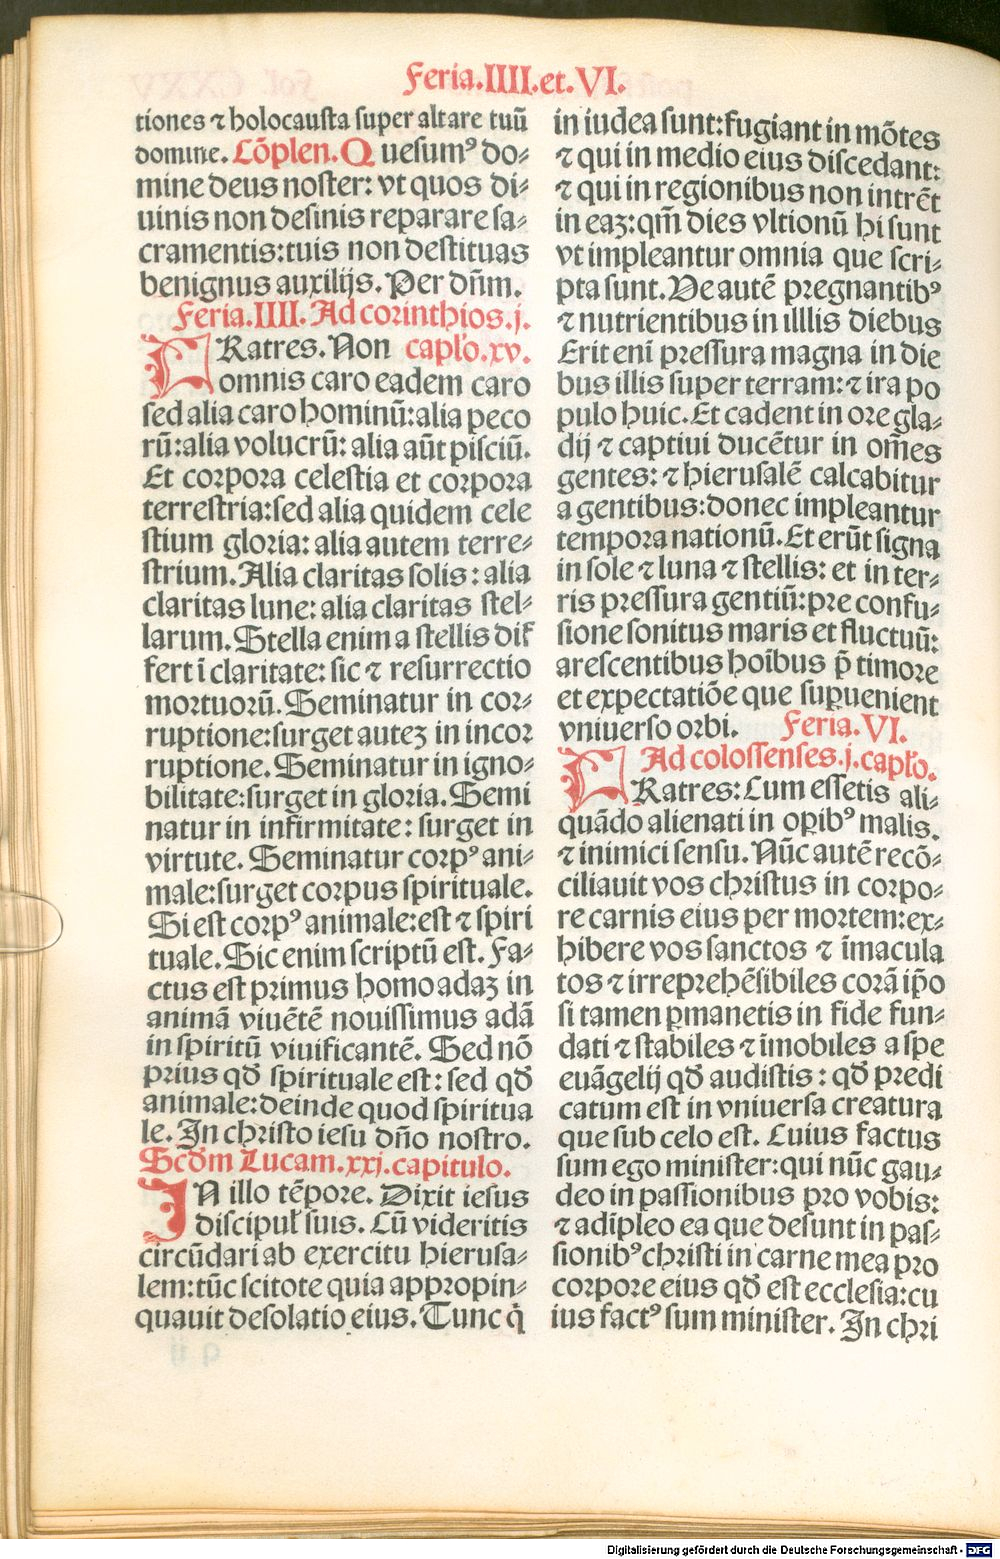 Feria.IIII.et.VI.
tiones ⁊ holocausta super altare tuū
domine. Cōplen. Quesumꝰ do⸗
mine deus noster: vt quos di⸗
uinis non desinis reparare sa⸗
cramentis: tuis non destituas
benignus auxilijs. Per dn̄m.
Feria.IIII. Ad corinthios.j.
FRatres. Non caplo.xv.
omnis caro eadem caro
sed alia caro hominū: alia peco
rū: alia volucrū: alia aūt pisciū.
Et corpora celestia et corpora
terrestria: sed alia quidem cele
stium gloria: alia autem terre⸗
strium. Alia claritas solis: alia
claritas lune: alia claritas stel⸗
larum. Stella enim a stellis dif
fert ī claritate: sic ⁊ resurrectio
mortuorū. Seminatur in cor⸗
ruptione: surget auteꝫ in incor
ruptione. Seminatur in igno⸗
bilitate: surget in gloria. Semi
natur in infirmitate: surget in
virtute. Seminatur corpꝰ ani⸗
male: surget corpus spirituale.
Si est corpꝰ animale: est ⁊ spiri
tuale. Sic enim scriptū est. Fa⸗
ctus est primus homo adaꝫ in
animā viuētē nouissimus adā
in spiritū viuificantē. Sed nō
prius qd̄ spirituale est: sed qd̄
animale: deinde quod spiritua
le. In christo iesu dn̄o nostro.
Scd̄m Lucam.xxj.capitulo.
IN illo tēpore. Dixit iesus
discipul suis. Cū videritis
circūdari ab exercitu hierusa⸗
lem: tūc scitote quia appropin⸗
quauit desolatio eius. Tunc q̄
in iudea sunt: fugiant in mōtes
⁊ qui in medio eius discedant:
⁊ qui in regionibus non intrēt
in eaꝫ: qm̄ dies vltionū hi sunt
vt impleantur omnia que scri⸗
pta sunt. Ve autē pregnantibꝰ
⁊ nutrientibus in illlis diebus
Erit enī pressura magna in die
bus illis super terram: ⁊ ira po
pulo huic. Et cadent in ore gla⸗
dij ⁊ captiui ducētur in om̄es
gentes: ⁊ hierusalē calcabitur
a gentibus: donec impleantur
tempora nationū. Et erūt signa
in sole ⁊ luna ⁊ stellis: et in ter⸗
ris pressura gentiū: pre confu⸗
sione sonitus maris et fluctuū:
arescentibus hoībus p̄ timore
et expectatiōe que suꝑuenient
vniuerso orbi. Feria.VI.
Ad colossenses.j.caplo.
FRatres: Cum essetis ali⸗
quādo alienati in oꝑibꝰ malis.
⁊ inimici sensu. Nūc autē recō⸗
ciliauit vos christus in corpo⸗
re carnis eius per mortem: ex⸗
hibere vos sanctos ⁊ īmacula
tos ⁊ irreprehēsibiles corā ip̄o
si tamen ꝑmanetis in fide fun⸗
dati ⁊ stabiles ⁊ īmobiles a spe
euāgelij qd̄ audistis: qd̄ predi
catum est in vniuersa creatura
que sub celo est. Cuius factus
sum ego minister: qui nūc gau⸗
deo in passionibus pro vobis:
⁊ adīpleo ea que desunt in pas⸗
sionibꝰ christi in carne mea pro
corpore eius qd̄ est ecclesia: cu
ius factꝰ sum minister. In chri
Digitalisierung gefördert durch die Deutsche Forschungsgemeinschaft - DFG